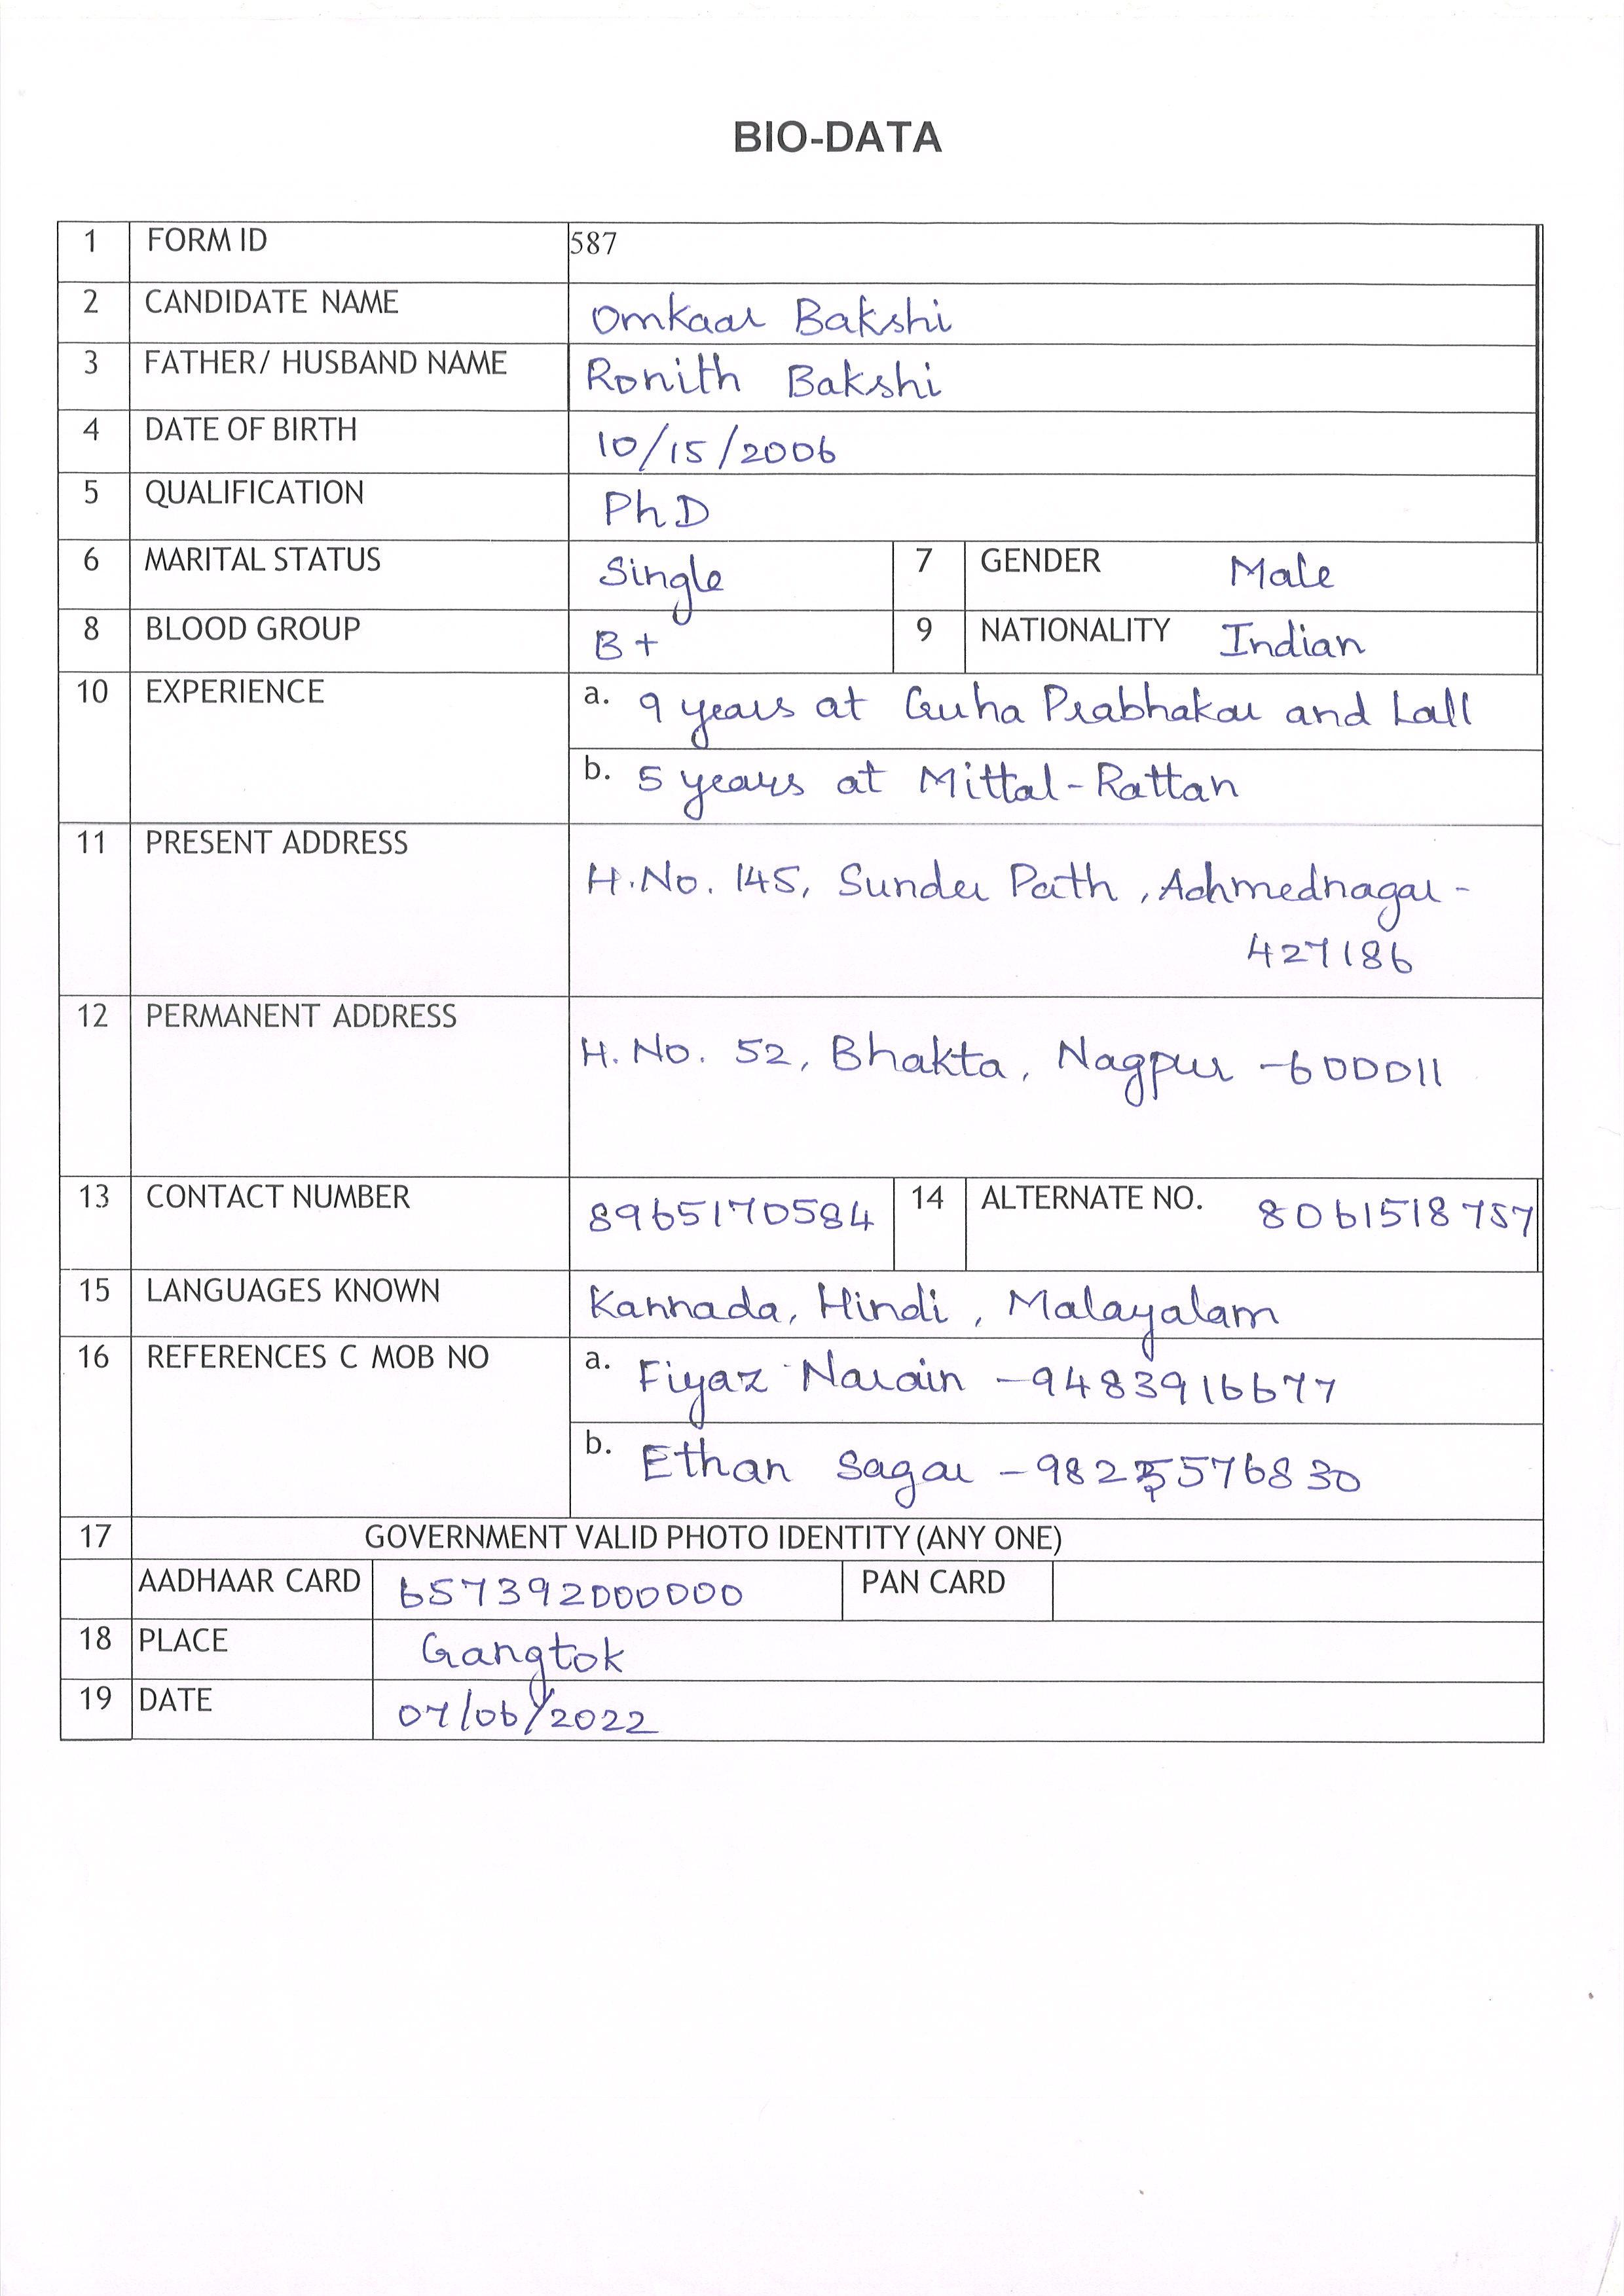 BIO-DATA
1 FORM ID 587
2 CANDIDATE NAME Omkaar Bakshi
3 FATHER/ HUSBAND NAME Ronith Bakshi
4 DATE OF BIRTH 10/15/2006
5 QUALIFICATION PhD
6 MARITAL STATUS Single 7 GENDER Male
8 BLOOD GROUP B+ 9 NATIONALITY Indian
10 EXPERIENCE a. 9 years at Guha Prabhakar and Lall
b. 5 years at Mittal-Rattan
11 PRESENT ADDRESS
H.No. 145, Sunder Path, Achmednagar -
427186
12 PERMANENT ADDRESS
H. No. 52, Bhakta, Nagpur -600011
13 CONTACT NUMBER 8965170584 14 ALTERNATE NO. 8061518757
15 LANGUAGES KNOWN Kannada, Hindi, Malayalam
16 REFERENCES C MOB NO a. Fiyaz Narain -9483916677
b. Ethan Sagar
17 GOVERNMENT VALID PHOTO IDENTITY (ANY ONE)
AADHAAR CARD 657392000000 PAN CARD
18 PLACE Gangtok
19 DATE 07/06/2022